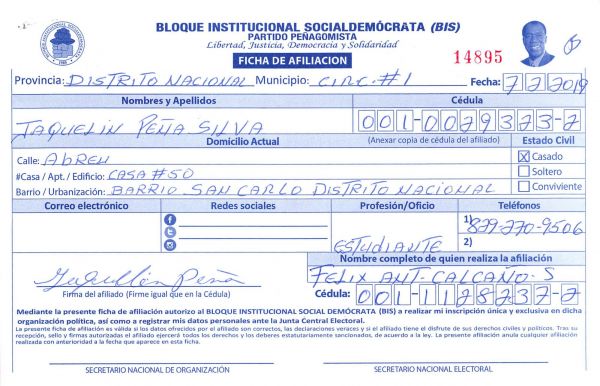 BLOQUE INSTITUCIONAL SOCIALDEMÓCRATA (BIS)
PARTIDO PEÑAGOMISTA
Libertad, Justicia, Democracia y Solidaridad
FICHA DE AFILIACION
14895
Provincia: DISTRITO NACIONAL Municipio: CIRC. #1 Fecha: 7/2/2019
Nombres y Apellidos Cédula
JAQUELIN PEÑA SILVA 001-0029323-2
Domicilio Actual (Anexar copia de cédula del afiliado) Estado Civil
Calle: ABREU X Casado
#Casa / Apt. / Edificio: CASA #50 Soltero
Barrio / Urbanización: BARRIO SAN CARLO DISTRITO NACIONAL Conviviente
Correo electrónico Redes sociales Profesión/Oficio Teléfonos
1) 829-270-9506
ESTUDIANTE 2)
Nombre completo de quien realiza la afiliación
FELIX ANT. CALCAÑO S
Firma del afiliado (Firme igual que en la Cédula) Cédula: 001-1128237-2
Mediante la presente ficha de afiliación autorizo al BLOQUE INSTITUCIONAL SOCIAL DEMÓCRATA (BIS) a realizar mi inscripción única y exclusiva en dicha
organización política, así como a registrar mis datos personales ante la Junta Central Electoral.
La presente ficha de afiliación es válida si los datos ofrecidos por el afiliado son correctos, las declaraciones veraces y si el afiliado tiene el disfrute de sus derechos civiles y políticos. Tras su
recepción, sello y firmas autorizadas el afiliado ejercerá todos los derechos y los deberes estatutariamente sancionados, de acuerdo a la ley. La presente afiliación anula cualquier afiliación
realizada con anterioridad a la fecha que aparece en esta ficha.
SECRETARIO NACIONAL DE ORGANIZACIÓN SECRETARIO NACIONAL ELECTORAL